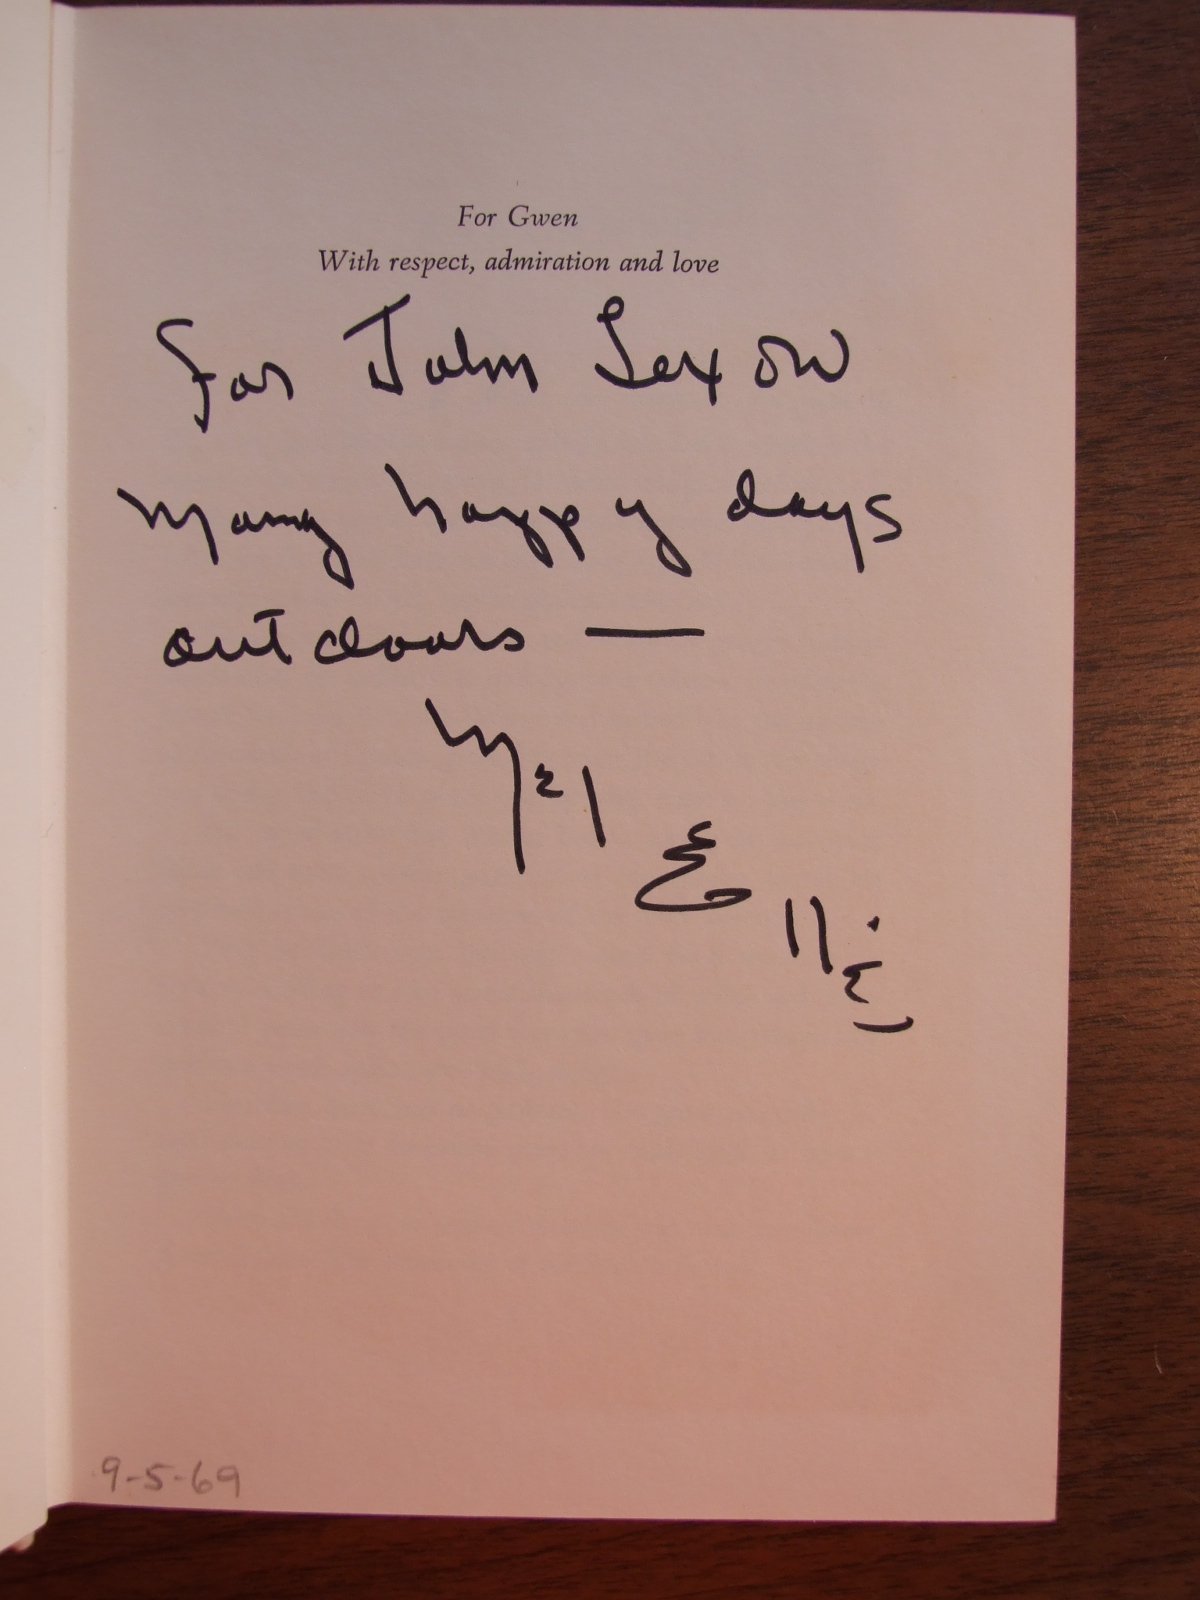 For Gwen
With respect, admiration and love
For John Sexow
Many happy days
outdoors —
Mel Ellis
9-5-69